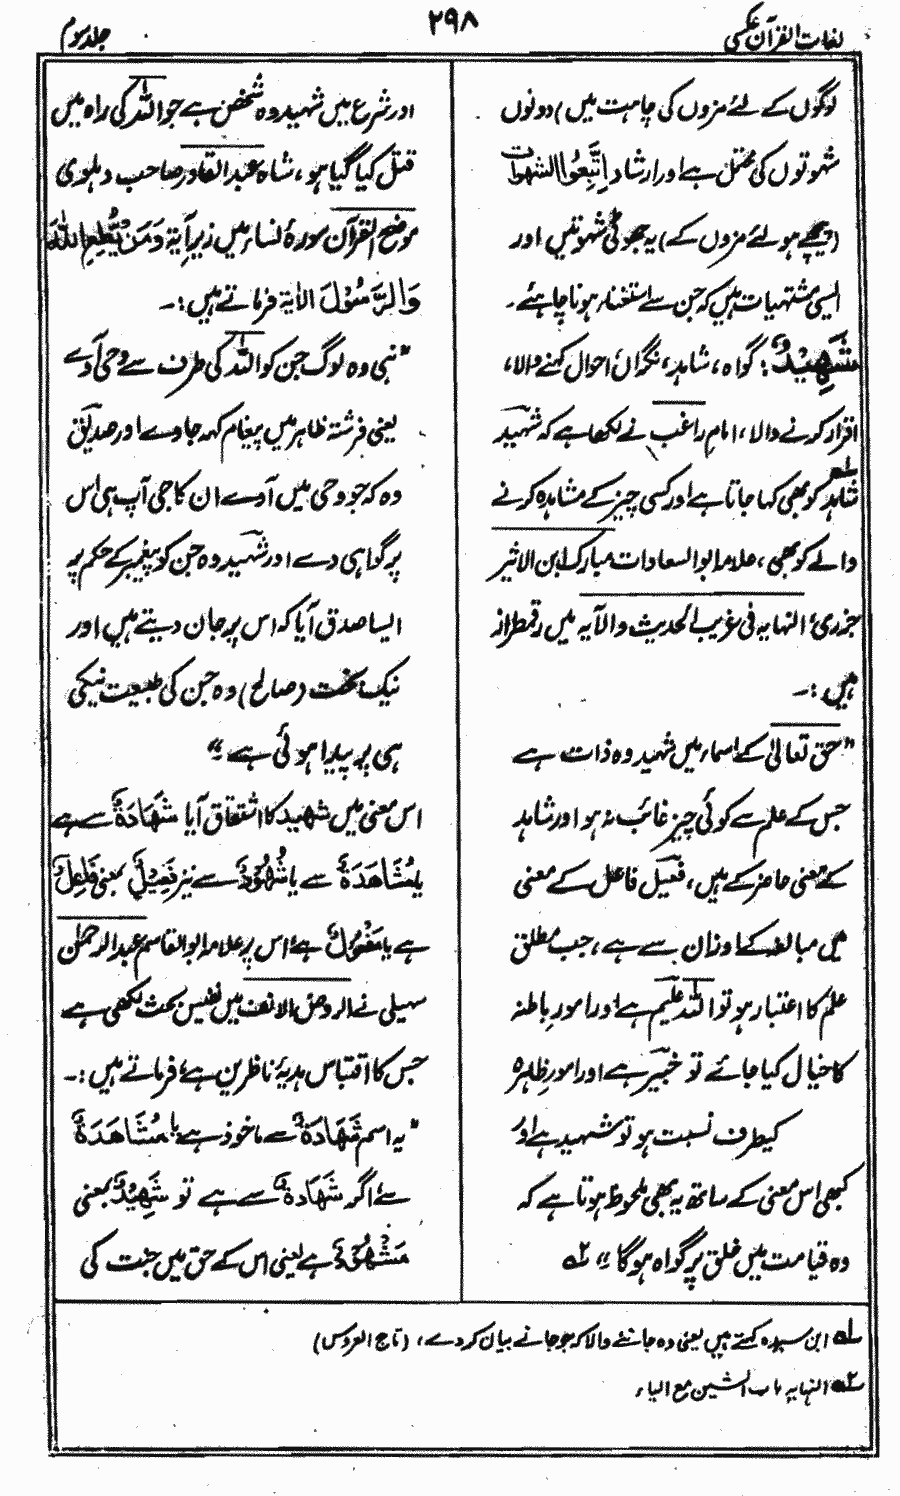 لغات القرآن عکسی
۲۹۸
جلد سوم
لوگوں کے لئے مزوں کی چاہت میں) دونوں
شہوتوں کی محتمل ہے اور ارشاد اِتَّبِعُوا الشہوات
(پیچھے ہولئے مزوں کے) یہ جھوٹی شہوتیں اور
ایسی مشتہیات ہیں کہ جن سے استغناء ہونا چاہئے۔
شَهِيْدٌ: گواہ، شاہد، نگراں احوال کہنے والا،
اقرار کرنے والا، امام راغب نے لکھا ہے کہ شہید
شاہد کو بھی کہا جاتا ہے اور کسی چیز کے مشاہدہ کرنے
والے کو بھی، علامہ ابوالسعادات مبارک ابن الاثیر
جزریؒ النہایہ فی غریب الحدیث والآیہ میں رقمطراز
ہیں:۔
"حق تعالیٰ کے اسماء میں شہید وہ ذات ہے
جس کے علم سے کوئی چیز غائب نہ ہو اور شاہد
کے معنی حاضر کے ہیں، فعیل فاعل کے معنی
میں مبالغہ کے اوزان سے ہے، جب مطلق
علم کا اعتبار ہو تو اللہ علیم ہے اور امور باطنہ
کا خیال کیا جائے تو خبیر ہے اور امور ظاہرہ
کیطرف نسبت ہو تو شہید ہے اور
کبھی اس معنی کے ساتھ یہ بھی ملحوظ ہوتا ہے کہ
وہ قیامت میں خلق پر گواہ ہوگا" ۲ے
اور شرع میں شہید وہ شخص ہے جو اللہ کی راہ میں
قتل کیا گیا ہو، شاہ عبدالقادر صاحب دہلوی
موضح القرآن سورۂ نساء میں زیر آیۃ وَمَنْ یُّطِعِ اللّٰهَ
وَالرَّسُوْلَ الاٰیۃ فرماتے ہیں:۔
"نبی وہ لوگ جن کو اللہ کی طرف سے وحی آوے
یعنی فرشتہ ظاہر میں پیغام کہہ جاوے اور صدیق
وہ کہ جو وحی میں آوے ان کا جی آپ ہی اس
پر گواہی دے اور شہید وہ جن کو پیغمبر کے حکم پر
ایسا صدق آیا کہ اس پر جان دیتے ہیں اور
نیک بخت (صالح) وہ جن کی طبیعت نیکی
ہی پر پیدا ہوئی ہے"
اس معنی میں شہید کا اشتقاق آیا شَهَادَةٌ سے ہے
یا مُشَاهَدَةٌ سے یا شُهُوْدٌ سے نیز فَعِیْلٌ بمعنی فَاعِلٌ
ہے یا مَفْعُوْلٌ ہے اس پر علامہ ابوالقاسم عبدالرحمٰن
سہیلی نے الروض الانف میں نفیس بحث لکھی ہے
جس کا اقتباس ہدیۂ ناظرین ہے فرماتے ہیں:۔
"یہ اسم شَهَادَةٌ سے ماخوذ ہے یا مُشَاهَدَةٌ
سے اگر شَهَادَةٌ سے ہے تو شَهِيْدٌ بمعنی
مَشْهُوْدٌ ہے یعنی اس کے حق میں جنت کی
۱ے ابن سیدہ کہتے ہیں یعنی وہ جاننے والا کہ جو جانے بیان کردے، (تاج العروس)
۲ے النہایہ باب الشین مع الہاء